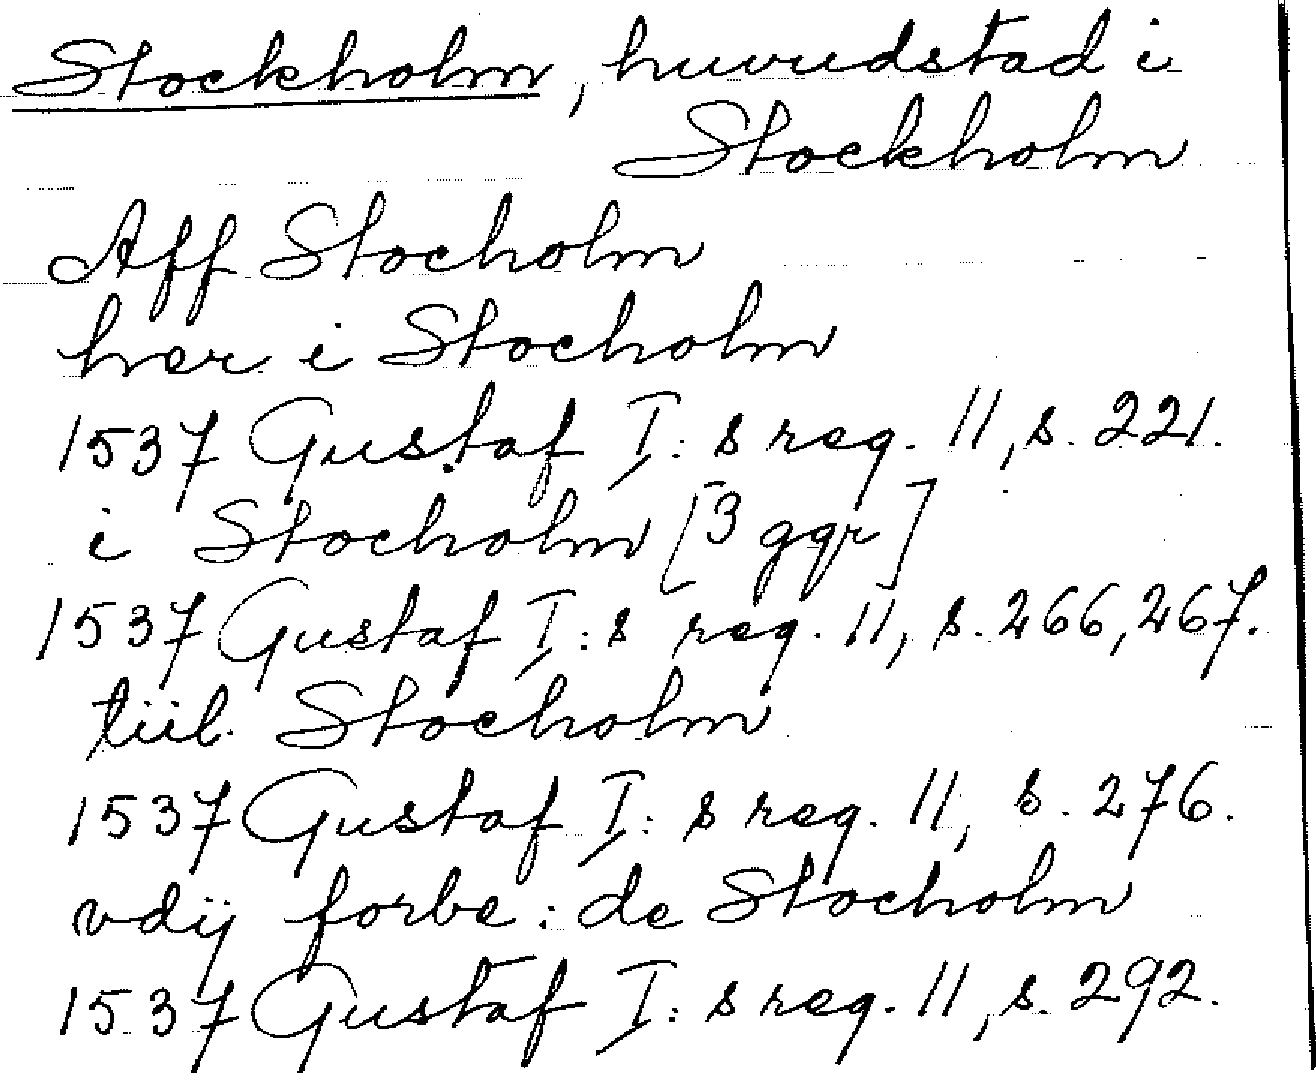 Stockholm, huvudstad i
Stockholm
Aff Stocholm
her i Stocholm
1537 Gustaf I:s reg. 11, s. 221.
i Stocholm [3 ggr]
1537 Gustaf I:s reg. 11, s. 266, 267.
tiil Stocholm
1537 Gustaf I:s reg. 11, s. 276.
vdij forbe: de Stocholm
1537 Gustaf I:s reg. 11, s. 292.